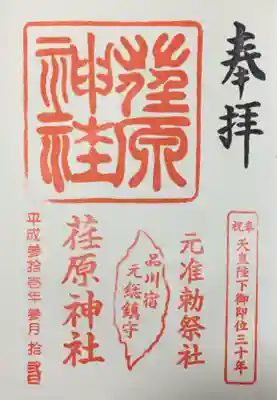 奉拝
奉祝 天皇陛下御即位三十年
元准勅祭社
荏原神社
品川宿
元総鎮守
荏原神社
平成参拾壱年参月拾